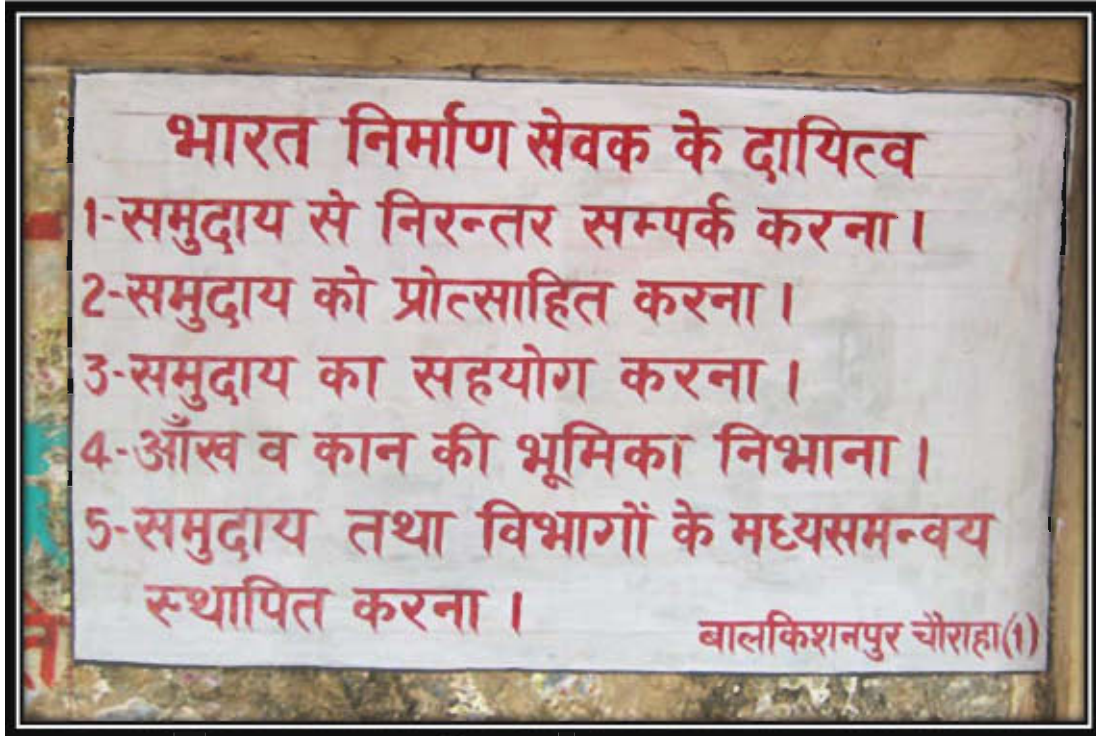 भारत निर्माण सेवक के दायित्व
1-समुदाय से निरन्तर सम्पर्क करना।
2-समुदाय को प्रोत्साहित करना।
3-समुदाय का सहयोग करना।
4-आँख व कान की भूमिका निभाना।
5-समुदाय तथा विभागों के मध्यसमन्वय
स्थापित करना।
बालकिशनपुर चौराहा(1)